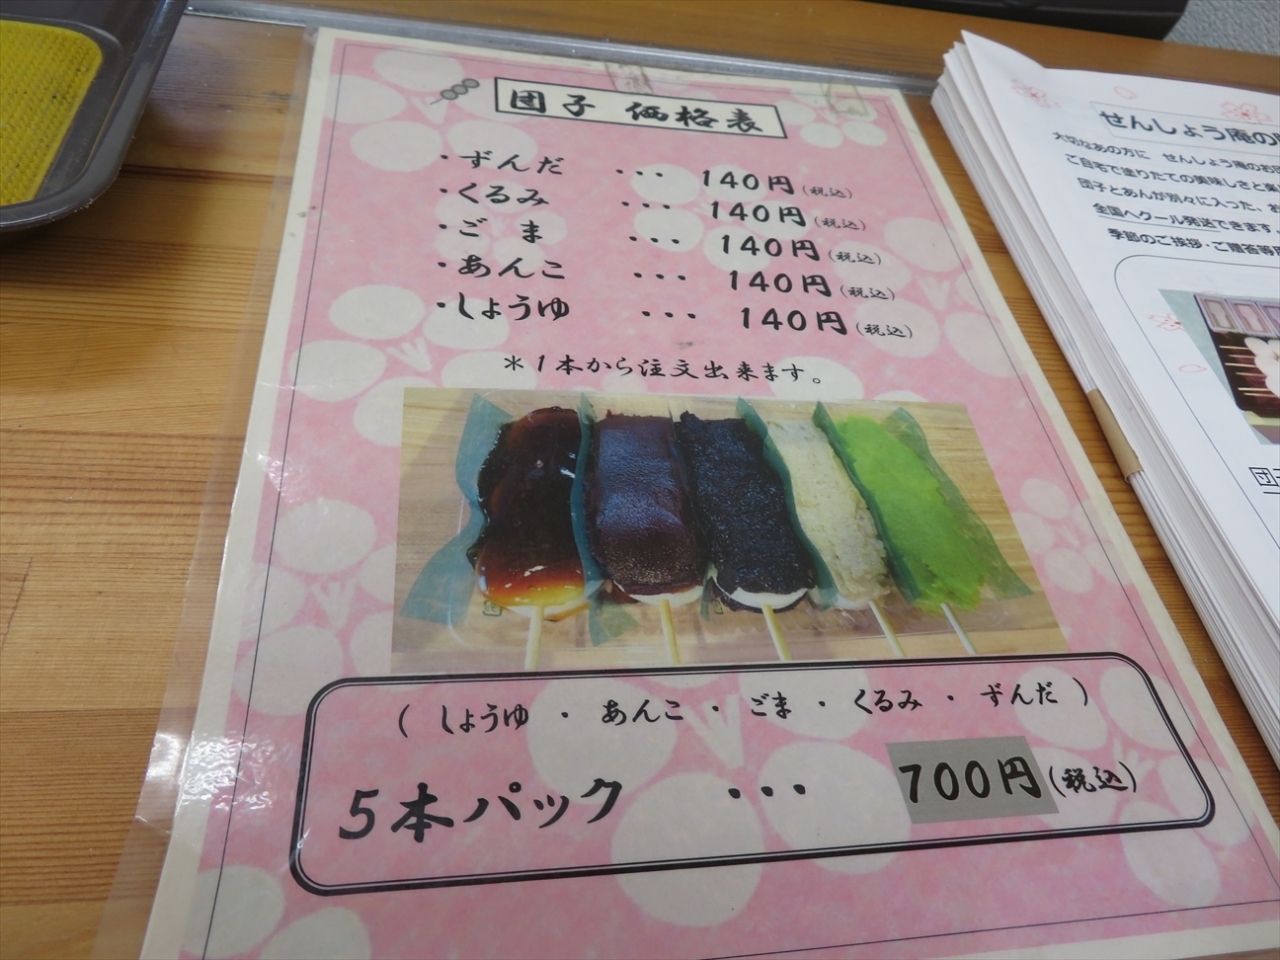 団子 価格表
・ずんだ ・・・ 140円(税込)
・くるみ ・・・ 140円(税込)
・ごま ・・・ 140円(税込)
・あんこ ・・・ 140円(税込)
・しょうゆ ・・・ 140円(税込)
＊1本から注文出来ます。
( しょうゆ ・ あんこ ・ ごま ・ くるみ ・ ずんだ )
5本パック ・・・ 700円(税込)
せんしょう庵の
大切なあの方に せんしょう庵のお
ご自宅で塗りたての美味しさと
団子とあんが別々に入った、
全国へクール発送できます
季節のご挨拶・ご贈答等
団